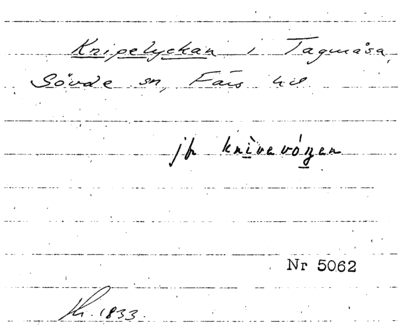 Knipelyckan i Tagmåsa,
Sövde sn, Färs hd
jfr knivevóŋen
Nr 5062
1833.